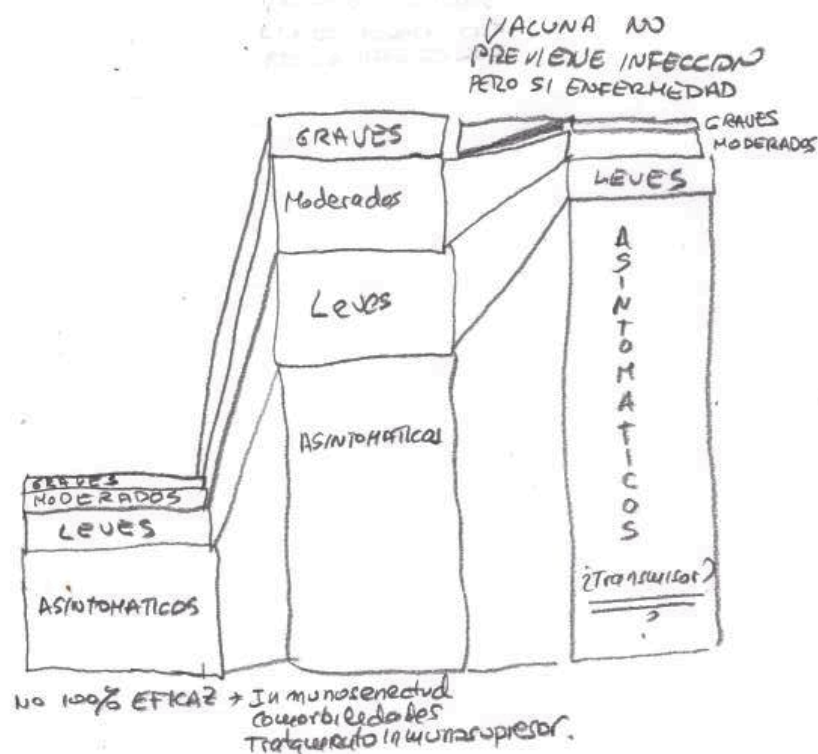 VACUNA NO
PREVIENE INFECCION
PERO SI ENFERMEDAD
GRAVES
Moderados
Leves
ASINTOMATICOS
GRAVES
MODERADOS
LEVES
ASINTOMATICOS
¿Transmisor?
?
GRAVES
MODERADOS
LEVES
ASINTOMATICOS
NO 100% EFICAZ → Inmunosenectud
comorbilidades
Tratamiento inmunosupresor.